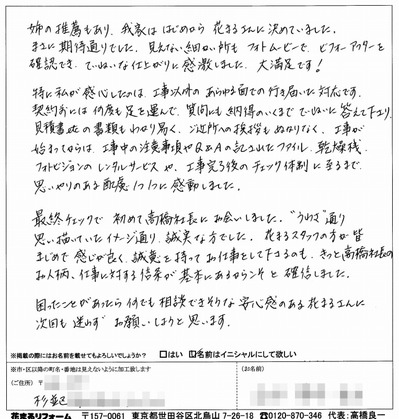 姉の推薦もあり、我家は はじめから 花まるさんに決めていました。
まさに期待通りでした。見えない細かい所も フォトムービーで、ビフォーアフターを
確認でき、ていねいな仕上がりに感激しました。大満足です！
特に私が感心したのは、工事以外のあらゆる面での行き届いた対応です。
契約前には何度も足を運んで、質問にも納得のいくまで ていねいに答えて下さり、
見積書etcの書類もわかり易く、ご近所への挨拶もぬかりなく、工事が
始まってからは、工事中の注意事項やQ&Aの記されたファイル、乾燥機、
フォトビジョンのレンタルサービスや、工事完了後のチェック体制に至るまで、
思いやりのある配慮1つ1つに感動しました。
最終チェックで 初めて高橋社長にお会いしました。“うわさ”通り
思い描いていたイメージ通り、誠実な方でした。花まるスタッフの方が皆
まじめで感じが良く、誠意を持ってお仕事をして下さるのも、きっと高橋社長の
お人柄、仕事に対する信条が基本にあるからこそと確信しました。
困ったことがあったら何でも相談できそうな安心感のある花まるさんに
次回も迷わずお願いしようと思います。
※掲載の際にはお名前を載せてもよろしいでしょうか？ □はい ☑名前はイニシャルにして欲しい
※市・区以降の町名・番地は見えないように加工致します
（ご住所） 〒
（お名前）
杉並区
花まるリフォーム 〒157-0061 東京都世田谷区北烏山 7-26-18 ☎0120-870-346 代表:高橋良一